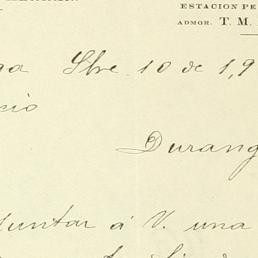 ESTACION PE
ADMOR. T. M.
9bre 10 de 1,9
cio
Durang
juntar á V. una